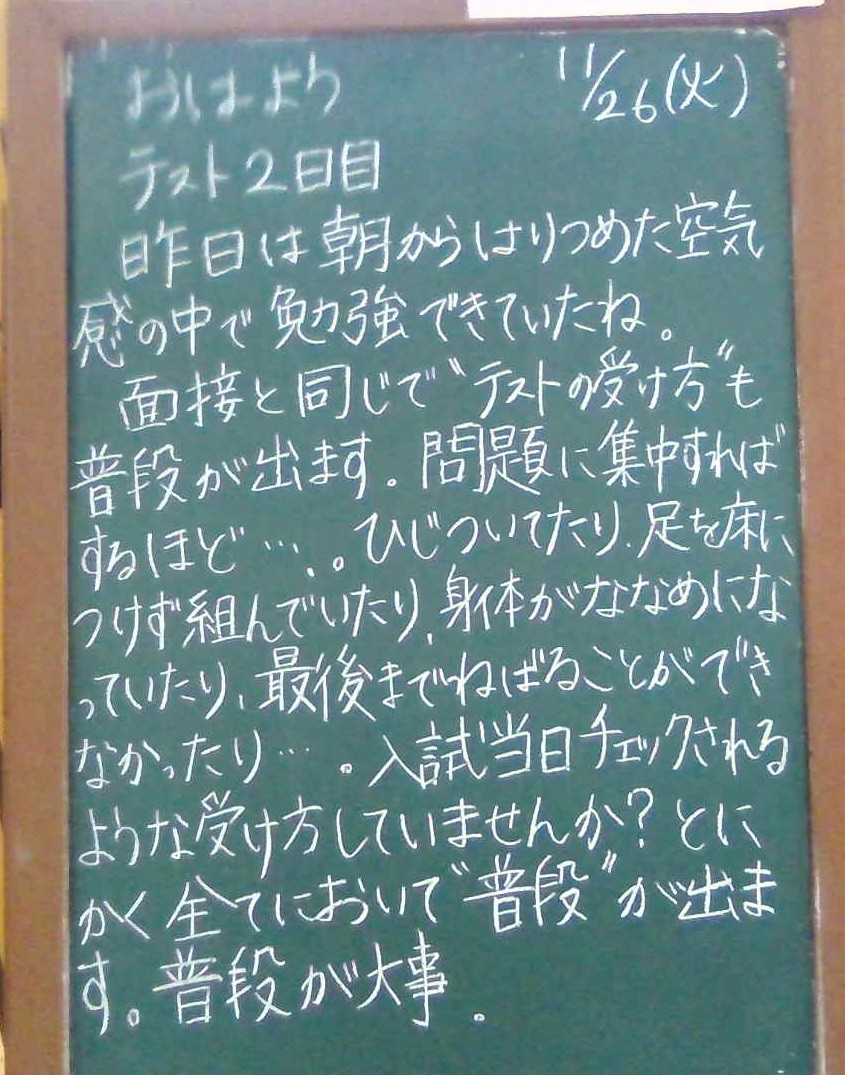 おはよう 11/26(火)
テスト2日目
昨日は朝からはりつめた空気
感の中で勉強できていたね。
面接と同じで〝テストの受け方〟も
普段が出ます。問題に集中すれば
するほど…。ひじついてたり、足を床に
つけず組んでいたり、身体がななめにな
っていたり、最後までねばることができ
なかったり…。入試当日チェックされる
ような受け方していませんか?とに
かく全てにおいて〝普段〟が出ま
す。普段が大事。